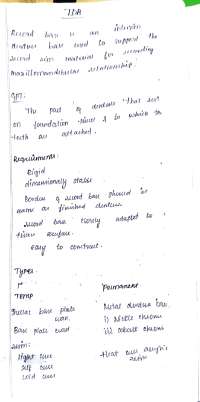 Record base is an interim
denture base used to support the
record rim material for recording
maxillomandibular relationship.
GPT:
The part of denture that rest
on foundation tissue & to which the
teeth are attached.
Requirements:
Rigid
dimensionally stable
Borders of record base should be
same as finished denture.
record base closely adapted to
tissue surface.
Easy to construct.
Types
Temp
Permanent
Shellac base plate
wax.
Base plate wax
resin:
light cure
self cure
cold cure
Metal denture base.
i) Nickle chromi
ii) cobalt chromi
Heat cure acrylic
resin